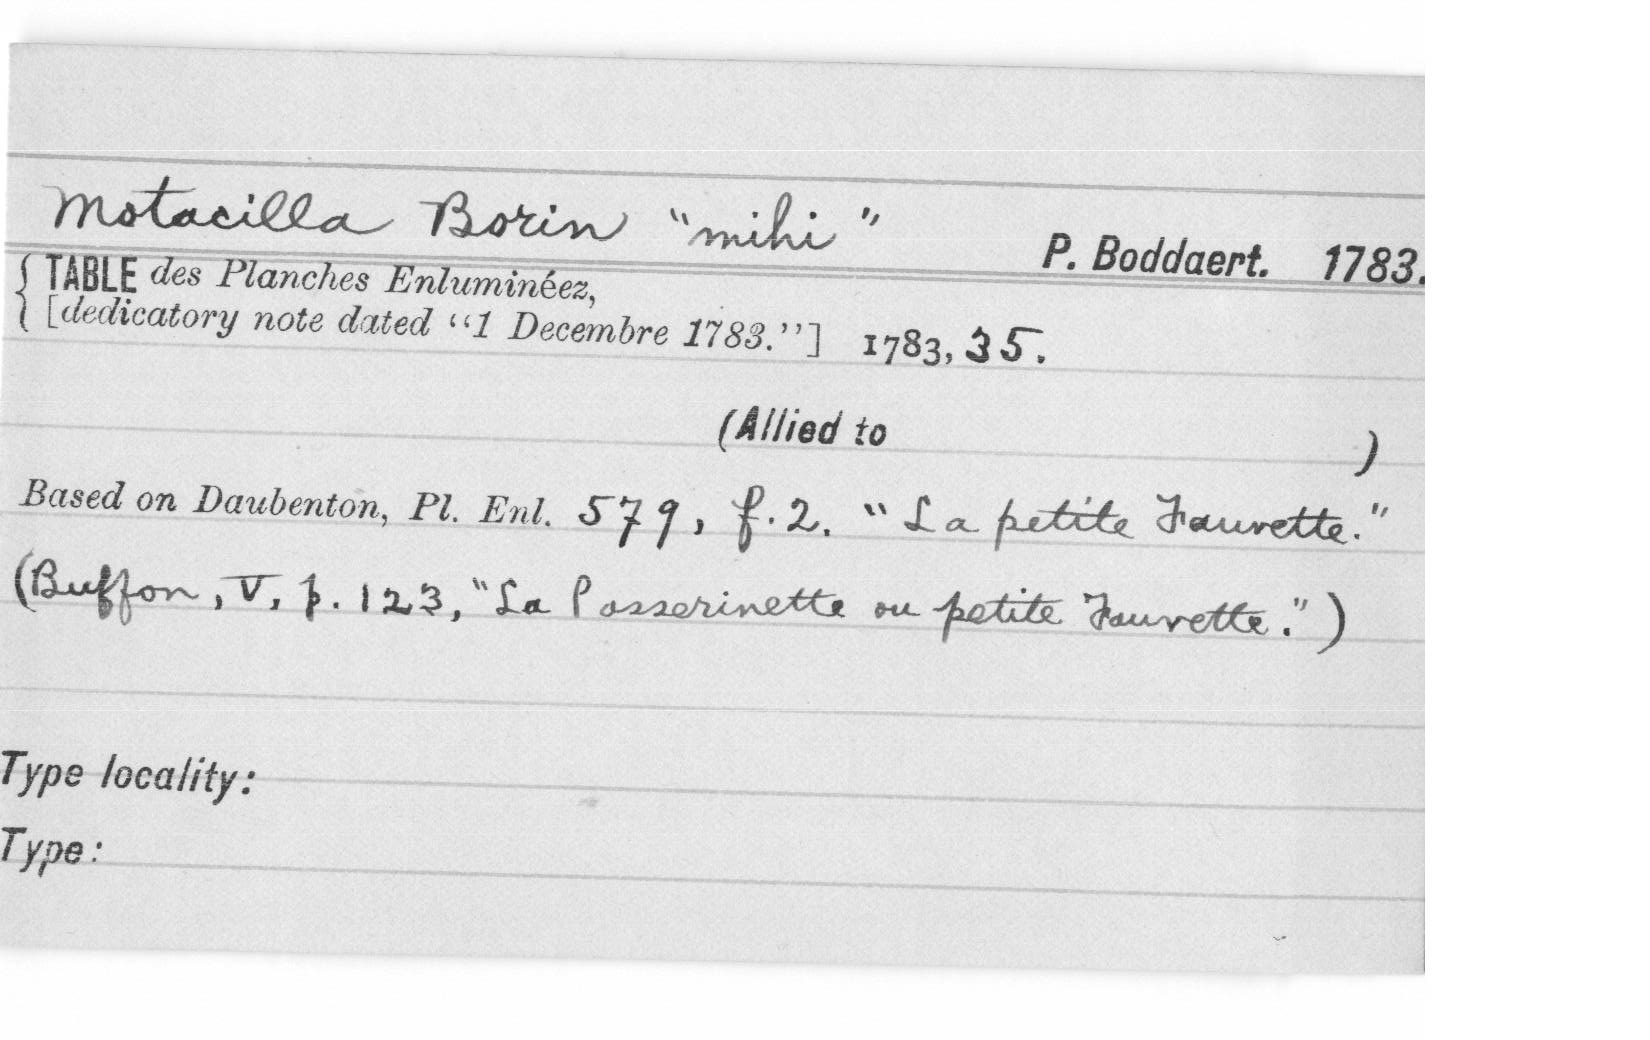 Motacilla Borin "mihi" P. Boddaert. 1783.
{ TABLE des Planches Enluminéez,
{ [dedicatory note dated "1 Decembre 1783."] 1783, 35.
(Allied to )
Based on Daubenton, Pl. Enl. 579, f.2. "La petite Fauvette."
(Buffon, V, p. 123, "La Passerinette ou petite Fauvette.")
Type locality:
Type: